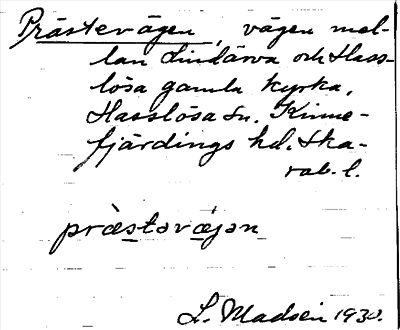 Prästevägen, vägen mel-
lan Lindärva och Hass-
lösa gamla kyrka,
Hasslösa sn. Kinne-
fjärdings hd. Ska-
rab. l.
præ̀stəvæ̣jən
L. Madsén 1930.